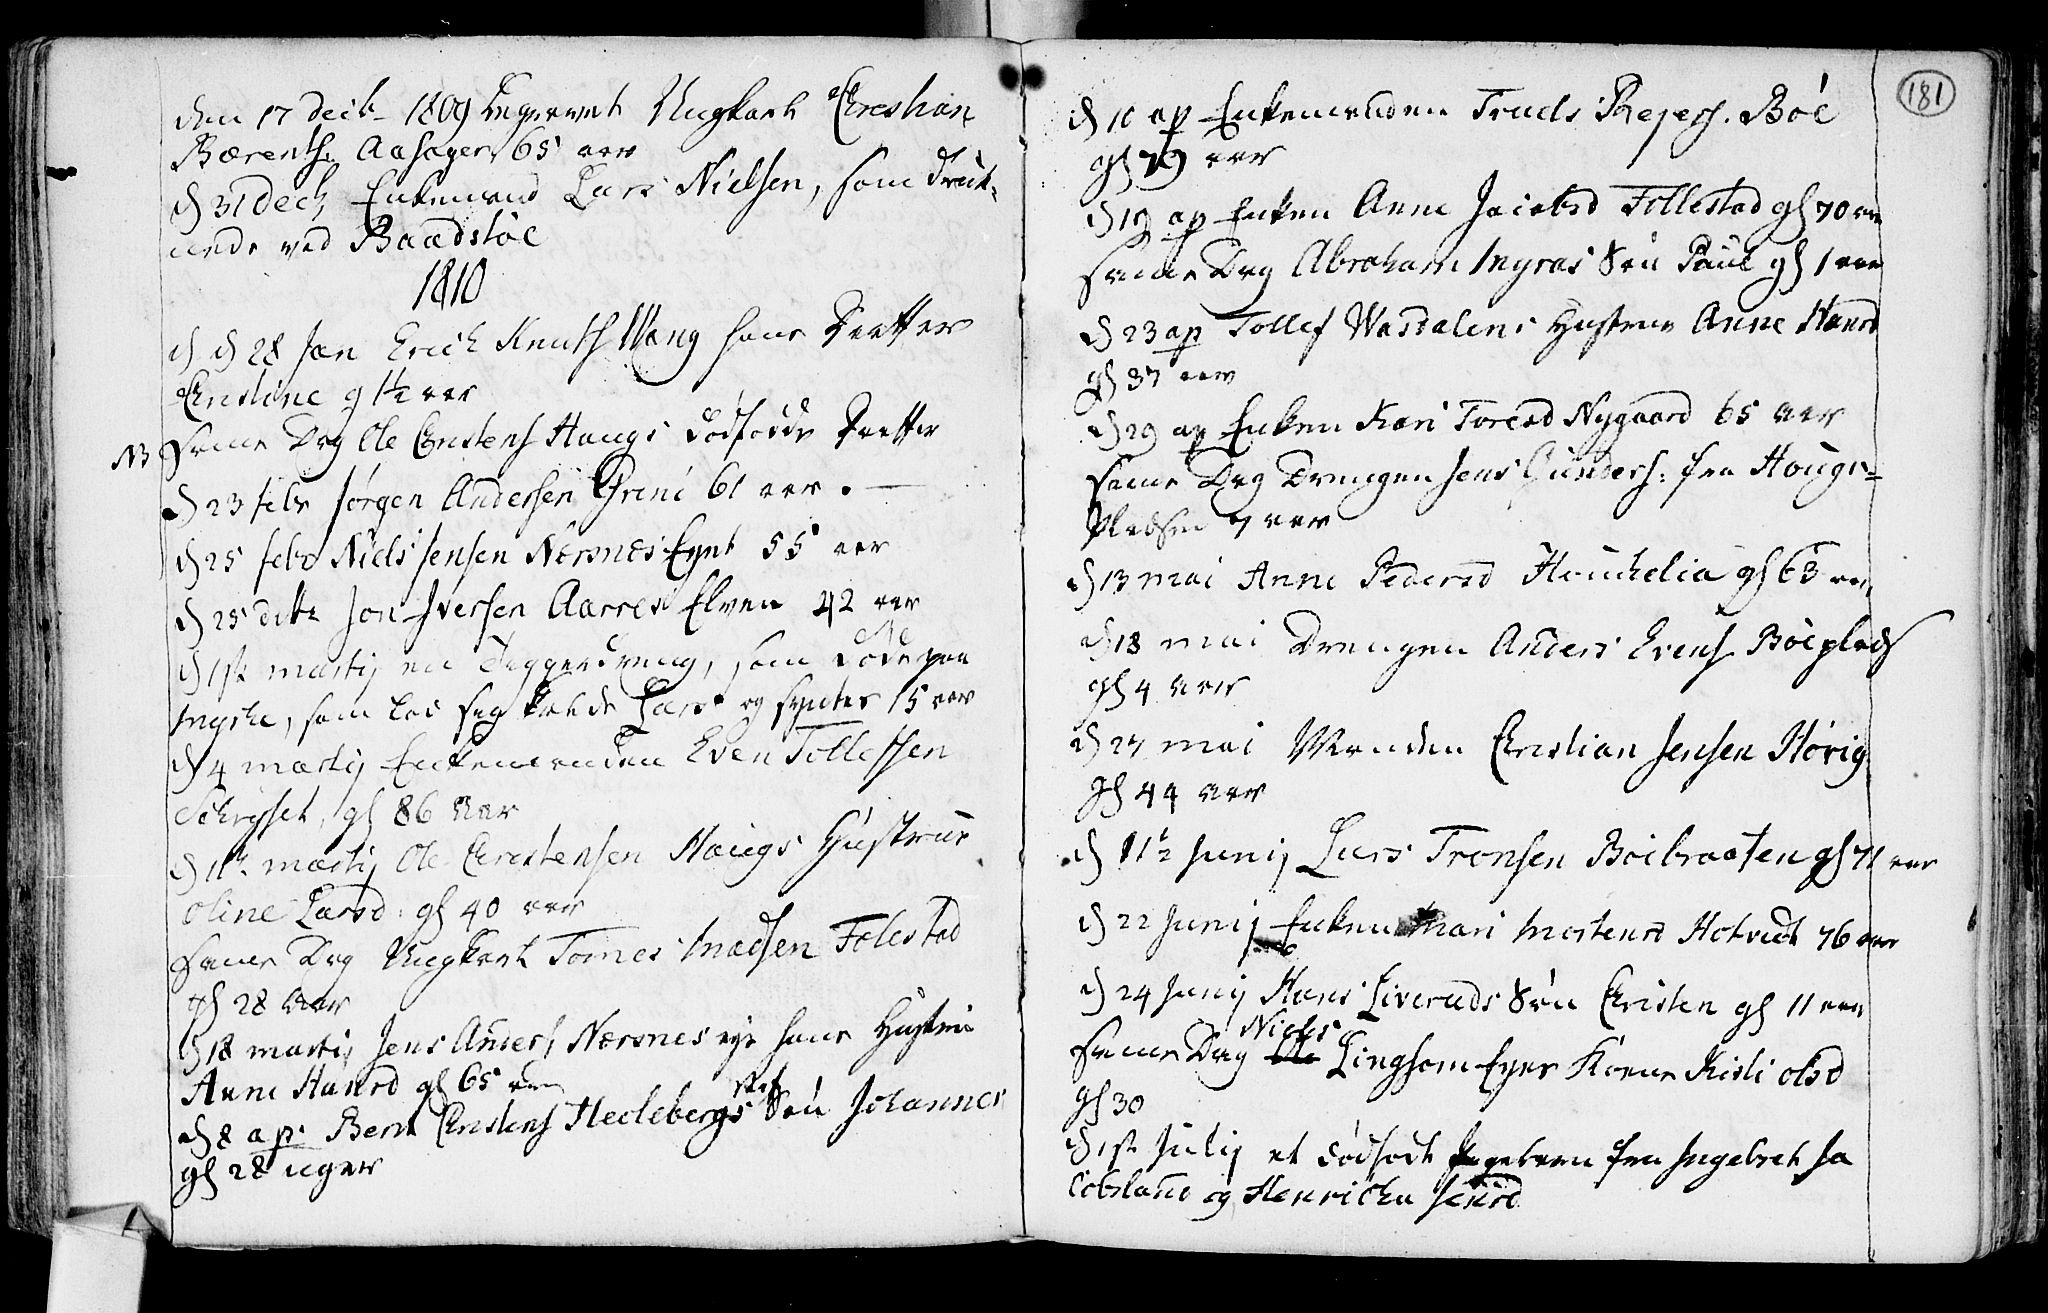 den 17 decb 1809 begravet Ungkarl Christian
Bærents. Aasager 65 aar
d 31 decb Enkemand Lars Nielsen, som druk-
nede ved Baadstøe
1810
d d 28 Jan Erich Knuts Wang hans Daatter
Christine g 1½ aar
NB Same Dag Ole Christens Haugs dødfødde Daatter
d 23 febr Jørgen Andersen Greni 61 aar. —
d 25 febr Niels Jensen Nærsnes Eynt 55 aar
d 25 dito Jon Iversen Aarres Elven 42 aar
d 1ste martij en Tiggerdreng, som døde paa
Myhre, som lod sig kalde Lars og syntes 15 aar
d 4 martij Enkemanden Even Tollefsen
gl 86 Aar
d 11te martij Ole Christensen Haugs Hustrue
Oline Larsd: gl 40 aar
Same Dag Ungkarl Tomes Madsen Follestad
gl 28 Aar
d 18 martij Jens Anders. Nærsnes eye hans Hustru
Anne Hansd gl 65 aar
d 8 ap. Bernt Christens Heclebergs Søn Johannes
gl 28 uger
181
d 10 ap Enkemanden Truels Rejers. Bøe
gl 79 aar
d 19 ap Enken Anne Jacobsd Follestad gl 70 aar
Same Dag Abraham Ingras Søn Paul gl 1 aar
d 23 ap Tollef Wasdalens Hustrue Anne Hansd
gl 37 aar
d 29 ap Enken Kari Toresd Nygaard 65 aar
Same Dag Drengen Jens Gunders: fra Houge-
Pladsen 7 aar
d 13 mai Anne Pedersd Haukelia gl 63 aar
d 13 mai Drengen Anders Evens Bøeplads
gl 4 aar
d 27 mai Manden Christian Jensen Hørig
gl 44 aar
d 11te Junij Lars Tronsen Boibraaten gl 71 aar
d 22 Junij Enken Mari Mortensd Hotvedt 76 aar
d 24 Junij Hans Liveruds Søn Christen gl 11 aar
Niels
Same Dag Ole Lingsom Eyes Kone Kisti Olsd
gl 30
d 1ste Julij et dødfødt Pigebarn fra Ingebret Ja
cobsland og Henricha Jensd